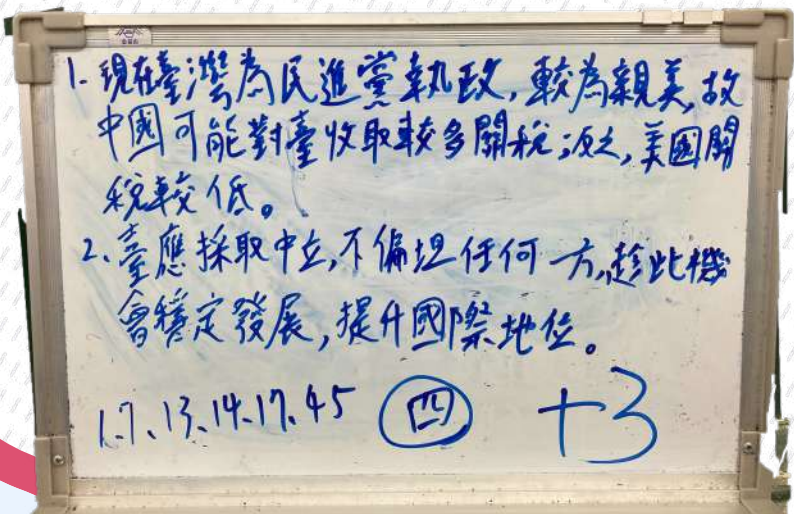 1. 現在臺灣為民進黨執政,較為親美,故
中國可能對臺收取較多關稅;反之,美國關
稅較低。
2、臺應採取中立,不偏坦任何一方,趁此機
會穩定發展,提升國際地位。
1.7、13、14.17、45 四 +3